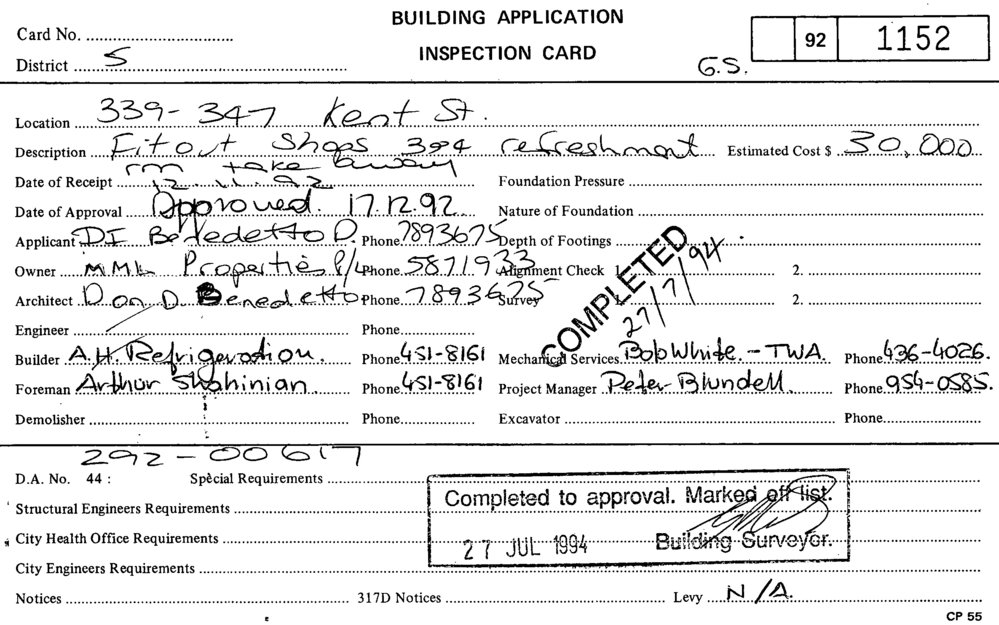 BUILDING APPLICATION
INSPECTION CARD
Card No.
District S
G.S.
92 1152
Location 339-347 Kent St.
Description Fitout Shops 3&4 refreshment Estimated Cost $ 30,000
rm take away
Date of Receipt 12.11.92 Foundation Pressure
Date of Approval Approved. 17.12.92 Nature of Foundation
Applicant DI Benedetto D. Phone 7893675 Depth of Footings
Owner MML Properties P/L Phone 5871933 Alignment Check 1. 2.
Architect Don D Benedetto Phone 7893675 Survey 1. 2.
COMPLETED
27/7/94
Engineer Phone
Builder A.H. Refrigeration. Phone 451-8161 Mechanical Services Bob White. - TWA. Phone 436-4026.
Foreman Arthur Shahinian Phone 451-8161 Project Manager Peter Blundell. Phone 954-0585.
Demolisher Phone Excavator Phone
292-00617
D.A. No. 44 : Special Requirements
Structural Engineers Requirements
City Health Office Requirements
City Engineers Requirements
Completed to approval. Marked off list.
27 JUL 1994 Building Surveyor.
Notices 317D Notices Levy N/A.
CP 55